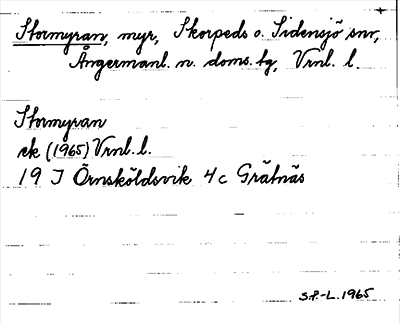 Stormyran, myr, Skorpeds o. Sidensjö snr,
Ångermanl. n. doms. tg, Vrnl. l.
Stormyran
ek (1965) Vrnl. l.
19 J Örnsköldsvik 4c Grätnäs
S.P.-L. 1965